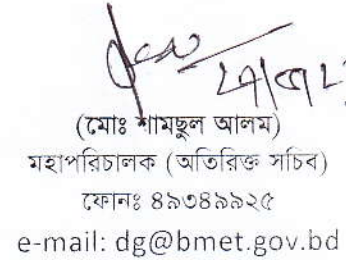 (মোঃ শামছুল আলম)
মহাপরিচালক (অতিরিক্ত সচিব)
ফোনঃ ৪৯৩৪৯৯২৫
e-mail: dg@bmet.gov.bd